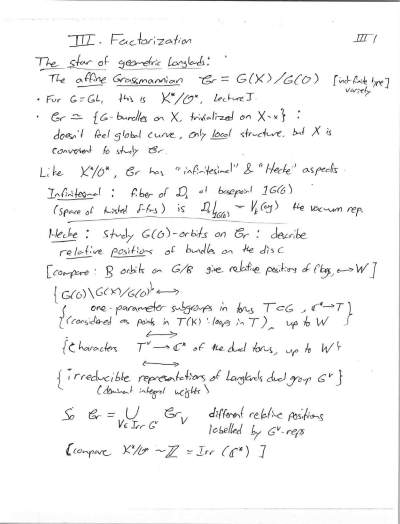 III. Factorization
III 1
The star of geometric Langlands:
The affine Grassmannian Gr = G(K)/G(O) [not finite type variety]
• For G=GL₁ this is K*/O*, Lecture I.
• Gr ≃ {G-bundles on X, trivialized on X-x} :
doesn't feel global curve, only local structure, but X is
convenient to study Gr
Like K*/O*, Gr has "infinitesimal" & "Hecke" aspects
Infinitesimal : fiber of D at basepoint 1G(O)
(space of twisted δ-fns) is the vacuum rep.
Hecke : study G(O)-orbits on Gr : describe
relative positions of bundles on the disc
[compare : B orbits on G/B give relative positions of flags, ↔ W]
{G(O)\G(K)/G(O)} ↔
{ one-parameter subgroups in torus T⊂G, C*→T
(considered as points in T(K) : loops in T), up to W }
↔
{Characters T^∨ → C* of the dual torus, up to W}
↔
{irreducible representations of Langlands dual group G^∨}
(dominant integral weights)
So Gr = ⋃ Gr_V different relative positions
V∈Irr G^∨ labelled by G^∨-reps
[compare K*/O* ~ ℤ = Irr (C*) ]